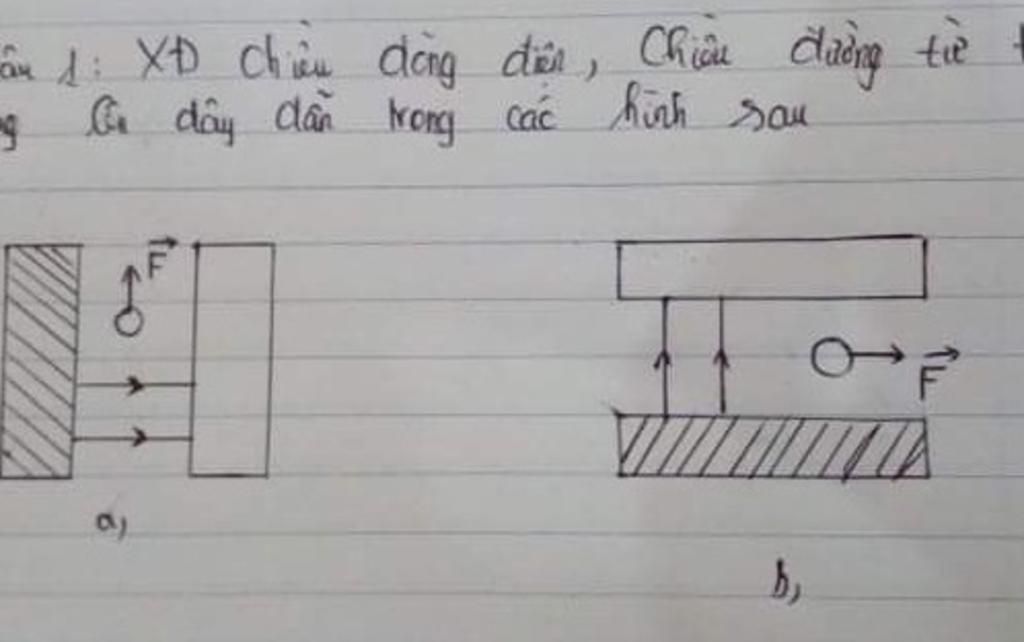 âu 1: XĐ chiều dòng điện, Chiều đường từ t
g lên dây dẫn trong các hình sau
F F
a, b,